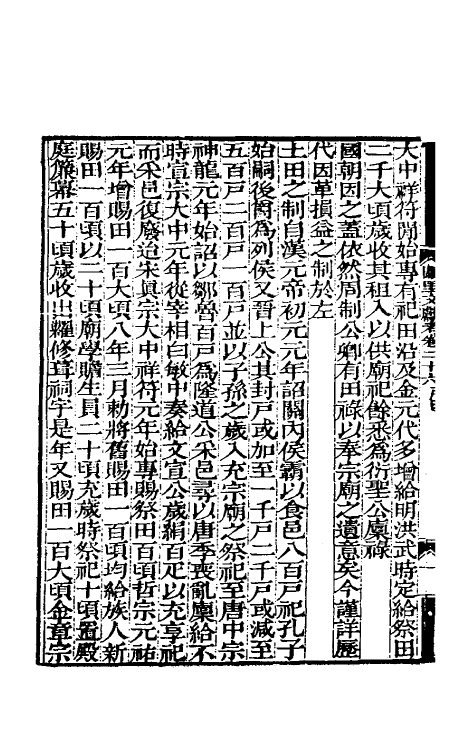 大中祥符開始專有祀田沿及金元代多增給明洪武時定給祭田
二千大頃歲收其租入以供廟祀餘悉為衍聖公廩祿
國朝因之蓋依然周制公卿有田祿以奉宗廟之遺意矣今謹詳歷
代因革損益之制於左
土田之制自漢元帝初元元年詔關內侯霸以食邑八百戶祀孔子
始嗣後爵為列侯又晉上公其封戶或加至一千戶二千戶或減至
五百戶二百戶一百戶並以子孫之歲入充宗廟之祭祀至唐中宗
神龍元年始詔以鄒魯百戶為隆道公采邑尋以唐季喪亂廩給不
時宣宗大中元年從宰相白敏中奏給文宣公歲絹百疋以充享祀
而采邑復廢迨宋真宗大中祥符元年始專賜祭田百頃哲宗元祐
元年增賜田一百大頃八年三月勅將舊賜田一百頃均給族人新
賜田一百頃以二十頃廟學贍生員二十頃充歲時祭祀十頃置殿
庭簾幕五十頃歲收出糶修葺祠宇是年又賜田一百大頃金章宗